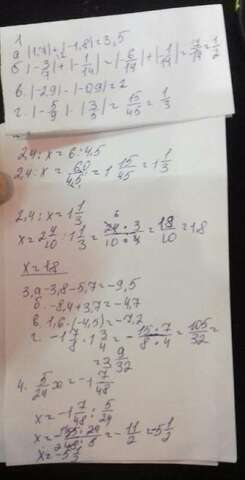 1.
а |1,7|+|-1,8|=3,5
б |-3/7|+|-1/14|=|-6/14|+|-1/14|=7/14=1/2
в. |-29|-|-0,9|=2
г. |-5/9|·|3/5|=15/45=1/3
2,4:x=6:4,5
2,4:x=60/45=1 15/45=1 1/3
2,4:x=1 1/3
x=2 4/10:1 1/3=24·3/10·4=18/10=18
x=18
3,9-3,8-5,7=-9,5
б. -8,4+3,7=-4,7
в 1,6·(-4,5)=-7,2
г. -1 7/8·1 3/4=-15·7/8·4=105/32=
=3 9/32
4. 5/24 x=-1 7/48
x=-1 7/48:5/24
x=-55·24/48·5=-11/2=-5 1/2